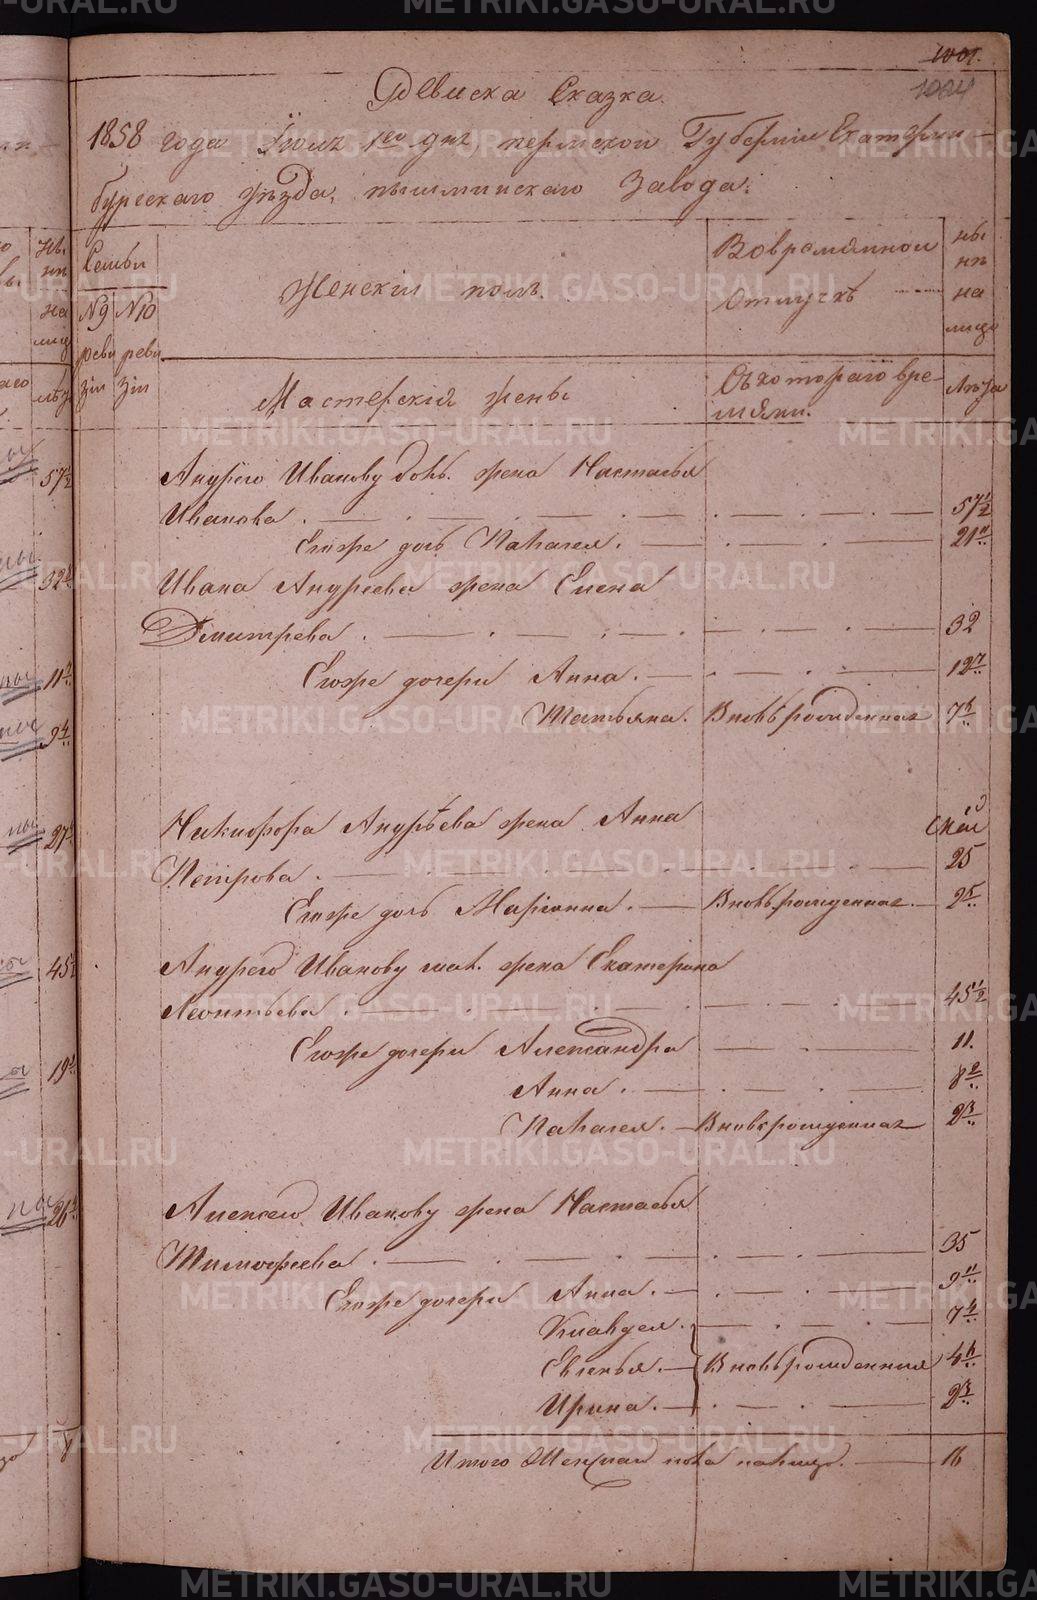 1001.
1004
Ревиска Сказка.
1858 года Іюля 1го дня пермской Губерніи Екатерин-
бургскаго уѣзда, пышминскаго Завода.
Семьи
№9 №10
реви реви
зіи зіи
Женскій полъ.
Во временной
Отлучкѣ
ны
нѣ
на
лицо
Мастерскія жены
Съ котораго вре-
мяни.
Лѣта
Андрею Иванову жена Настасья
Иванова 57 1/2
Егоже дочь Палагея. 21
Ивана Андреева жена Елена
Дмитрева 32
Егоже дочери Анна. 12
Татьяна. Вновьрожденная 7
Никифора Андрѣева жена Анна
Петрова 25
Егоже дочь Маріанна. Вновьрожденная 2
Андрею Иванову жена Екатерина
Леонтьева 45 1/2
Егоже дочери Александра 11.
Анна. 8
Палагея. Вновьрожденная 2
Алексею Иванову жена Настасья
Тимофеева 35
Егоже дочери Анна. 9
Клавдея. 7
Евгенья. Вновьрожденныя 4
Ирина. 2
Итого Женскаго пола налицо. 16
METRIKI.GASO-URAL.RU